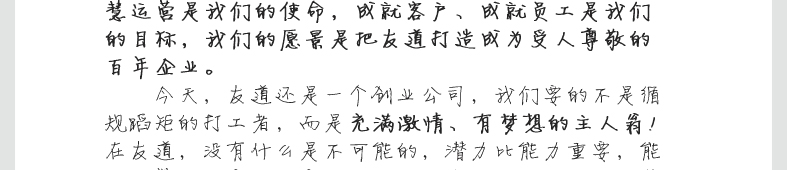 慧运营是我们的使命，成就客户、成就员工是我们
的目标，我们的愿景是把友道打造成为受人尊敬的
百年企业。
今天，友道还是一个创业公司，我们要的不是循
规蹈矩的打工者，而是充满激情、有梦想的主人翁！
在友道，没有什么是不可能的，潜力比能力重要，能